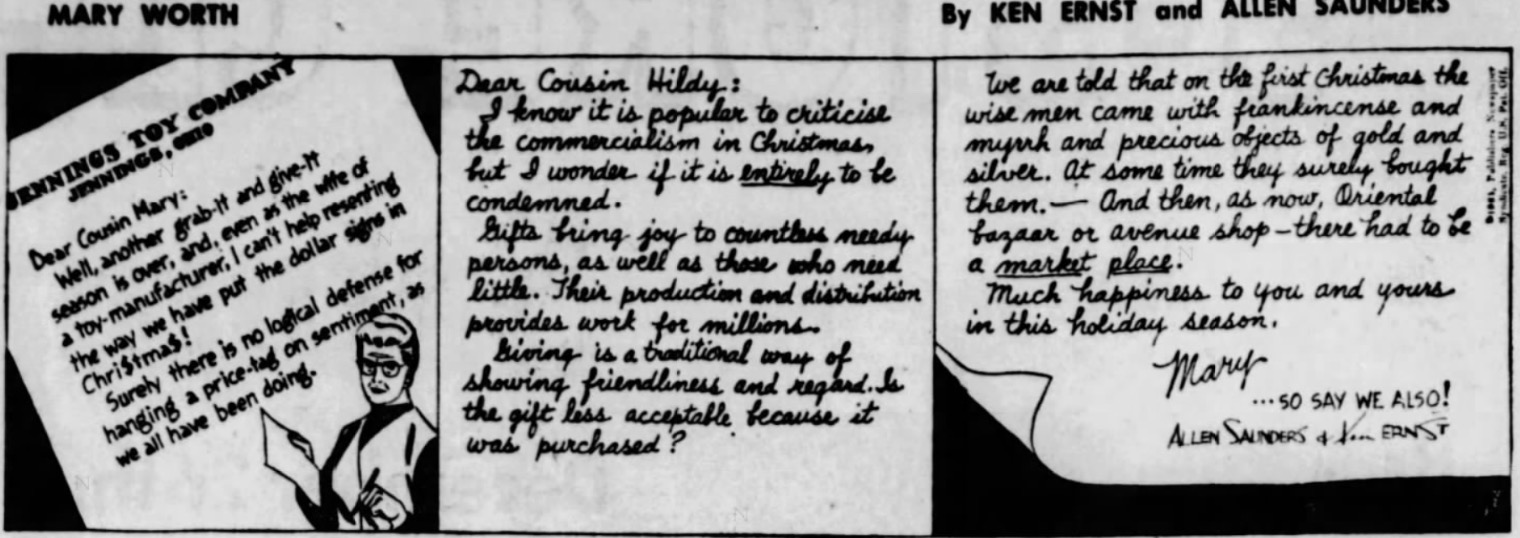 MARY WORTH
By KEN ERNST and ALLEN SAUNDERS
JENNINGS TOY COMPANY
JENNINGS, OHIO
Dear Cousin Mary:
Well, another grab-it and give-it
season is over, and, even as the wife of
a toy-manufacturer, I can't help resenting
the way we have put the dollar signs in
Chri$tma$!
Surely there is no logical defense for
hanging a price-tag on sentiment, as
we all have been doing.
Dear Cousin Hildy:
I know it is popular to criticise
the commercialism in Christmas,
but I wonder if it is entirely to be
condemned.
Gifts bring joy to countless needy
persons, as well as those who need
little. Their production and distribution
provides work for millions.
Giving is a traditional way of
showing friendliness and regard. Is
the gift less acceptable because it
was purchased?
We are told that on the first Christmas the
wise men came with frankincense and
myrrh and precious objects of gold and
silver. At some time they surely bought
them. — And then, as now, Oriental
bazaar or avenue shop – there had to be
a market place.
Much happiness to you and yours
in this holiday season.
Mary
...SO SAY WE ALSO!
ALLEN SAUNDERS & Ken ERNST
Publishers Newspaper
Syndicate, Reg. U.S. Pat. Off.